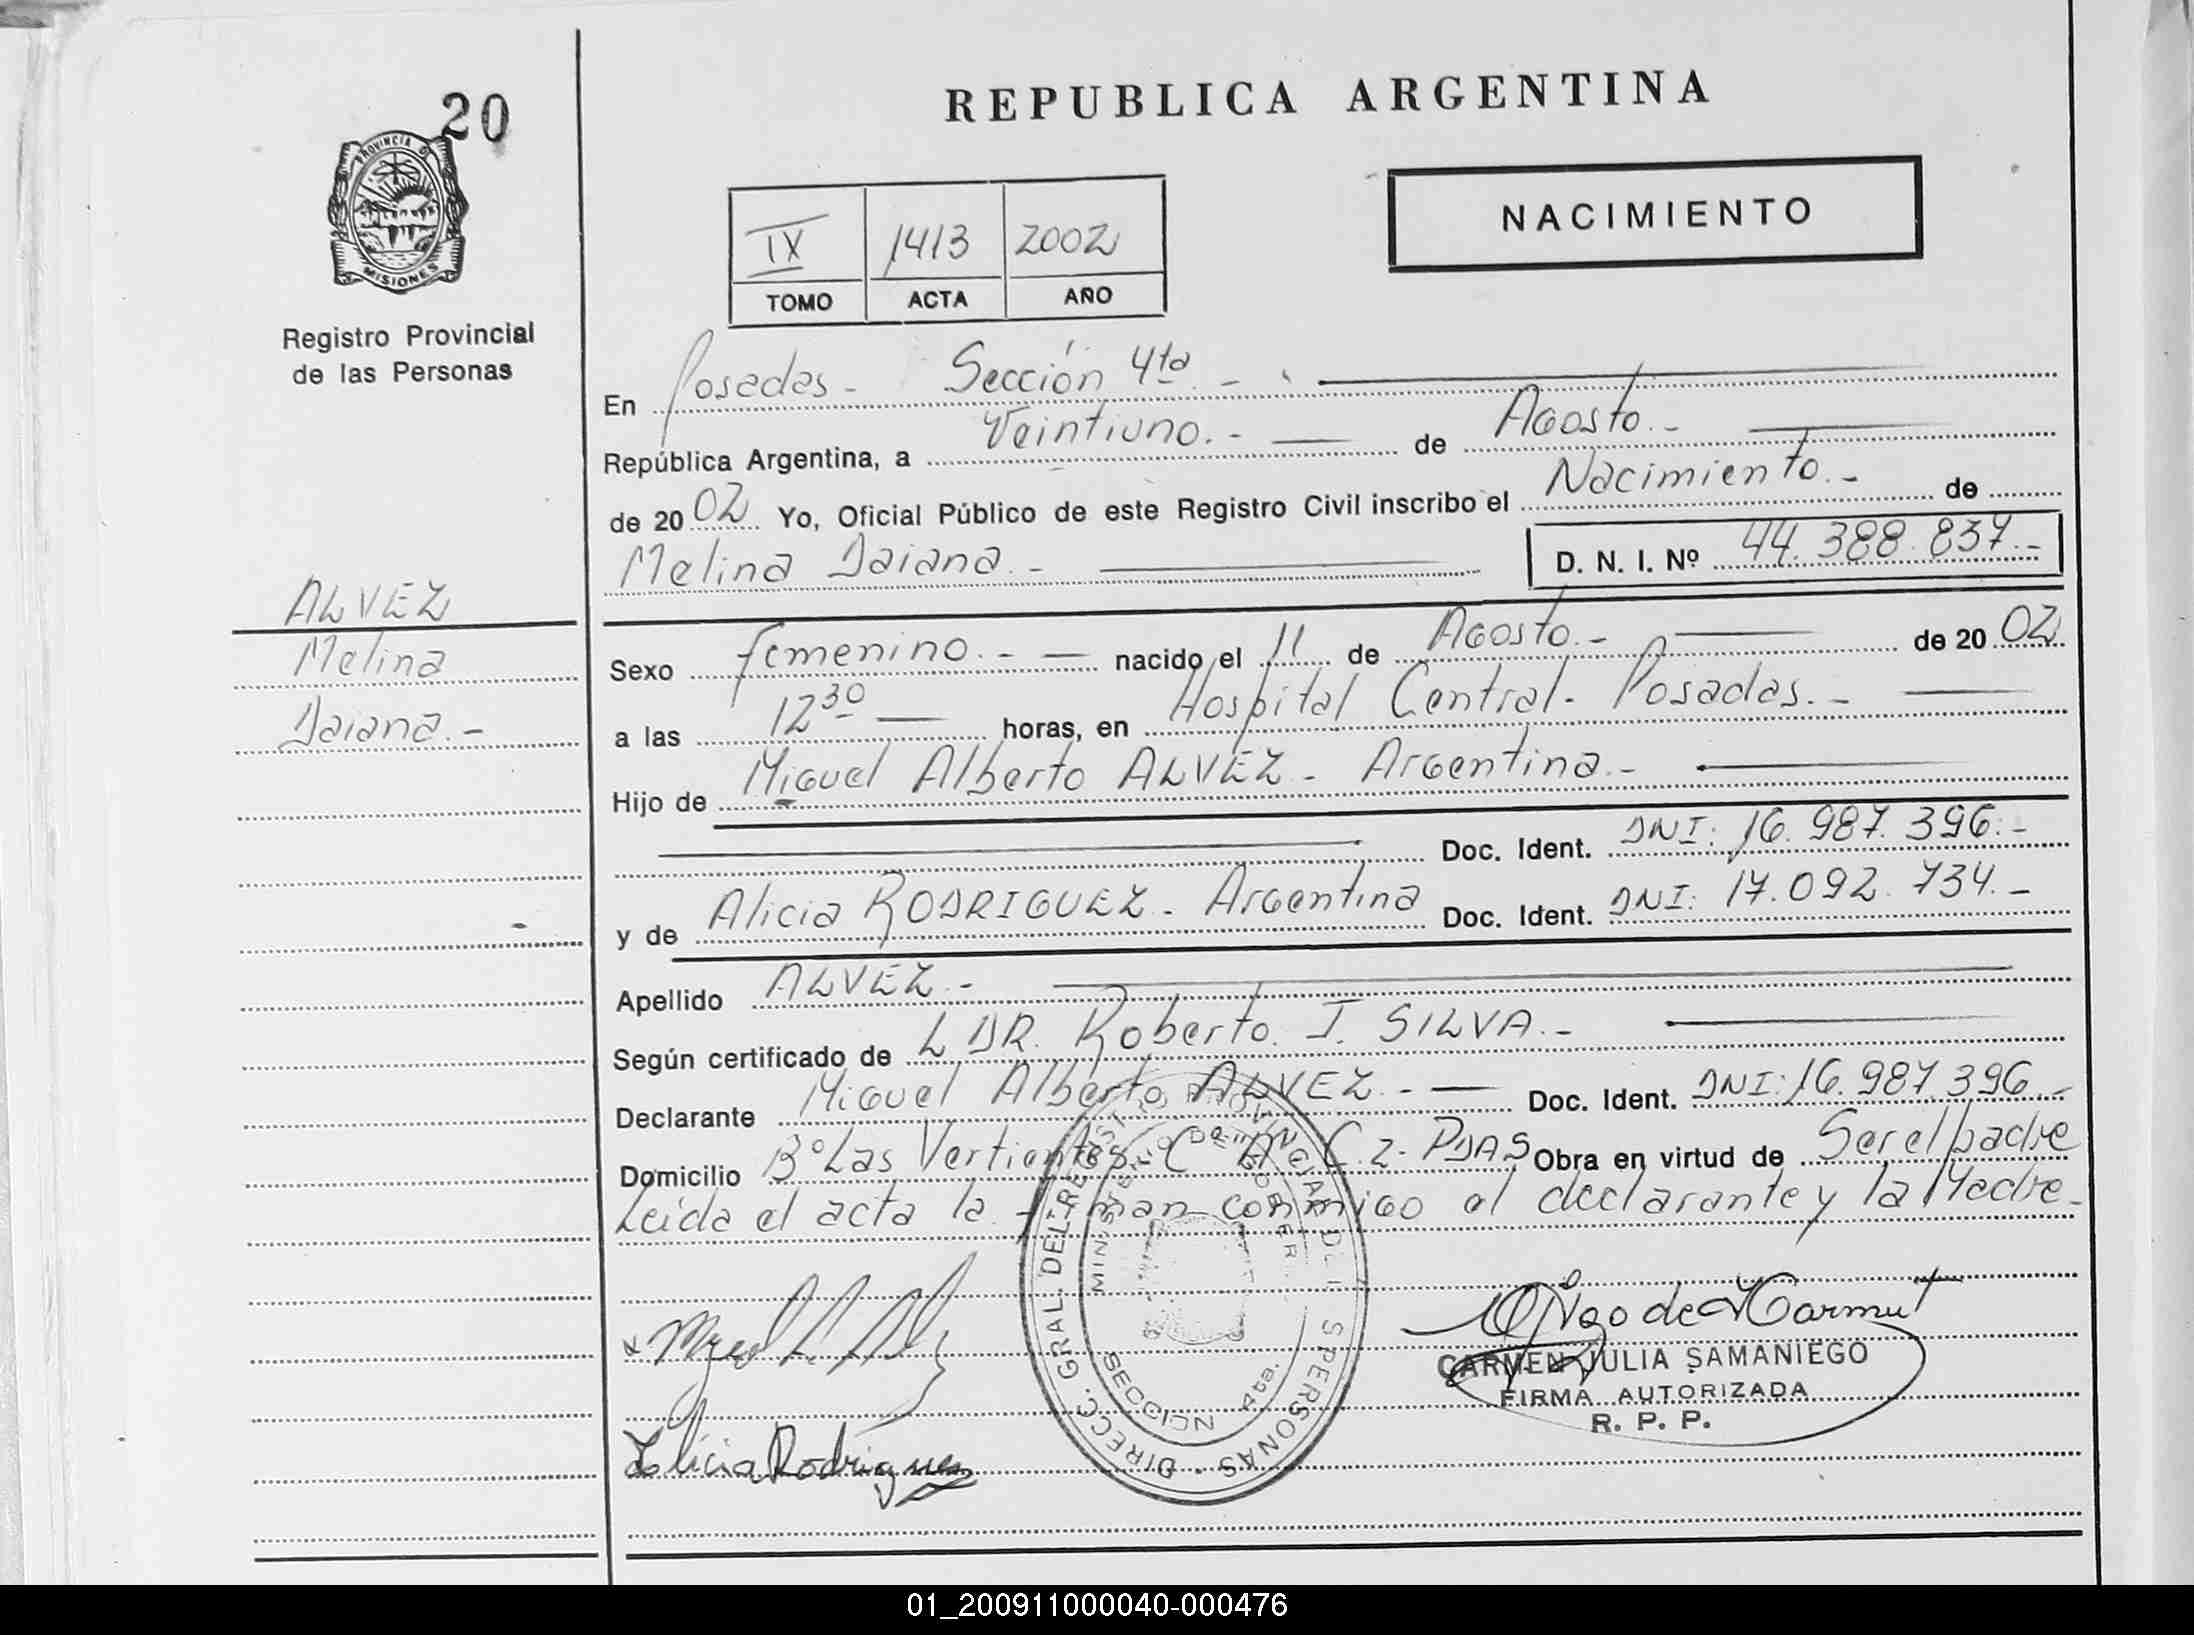 20
PROVINCIA DE
MISIONES
Registro Provincial
de las Personas
ALVEZ
Melina
Daiana.-
REPUBLICA ARGENTINA
NACIMIENTO
IX 1413 2002
TOMO ACTA AÑO
En Posadas - Sección 4ta. -
República Argentina, a Veintiuno. - de Agosto. -
de 2002 Yo, Oficial Público de este Registro Civil inscribo el Nacimiento. - de
Melina Daiana. - D. N. I. Nº 44.388.837.-
Sexo femenino. - nacido el 11 de Agosto. - de 2002
a las 12 30 horas, en Hospital Central. Posadas. -
Hijo de Miguel Alberto ALVEZ - Argentina. -
Doc. Ident. DNI: 16.987.396.-
y de Alicia RODRIGUEZ - Argentina Doc. Ident. DNI: 17.092.734.-
Apellido ALVEZ. -
Según certificado de L DR. Roberto. I. SILVA. -
Declarante Miguel Alberto ALVEZ. - Doc. Ident. DNI: 16.987.396.-
Domicilio Bº Las Vertientes C. 2- PDAS Obra en virtud de Ser el padre
Leída el acta la firman conmigo el declarante y la Madre-
DIRECC. GRAL. DEL REGISTRO PROVINCIAL DE LAS PERSONAS
MINISTERIO DE GOBIERNO
SECCION 4ta.
Alicia Rodriguez
CARMEN JULIA SAMANIEGO
FIRMA AUTORIZADA
R. P. P.
01_200911000040-000476